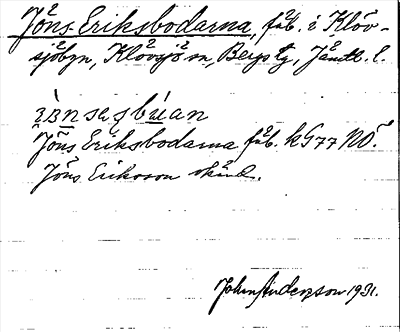 Jöns Eriksbodarna, fäb. i Klöv-
sjöbyn, Klövsjö sn, Bergs tg, Jämtl. l.
Jöns Eriksbodarna fäb. kG77 NÖ.
Jöns Eriksson skänk.
John Anderzson 1931.